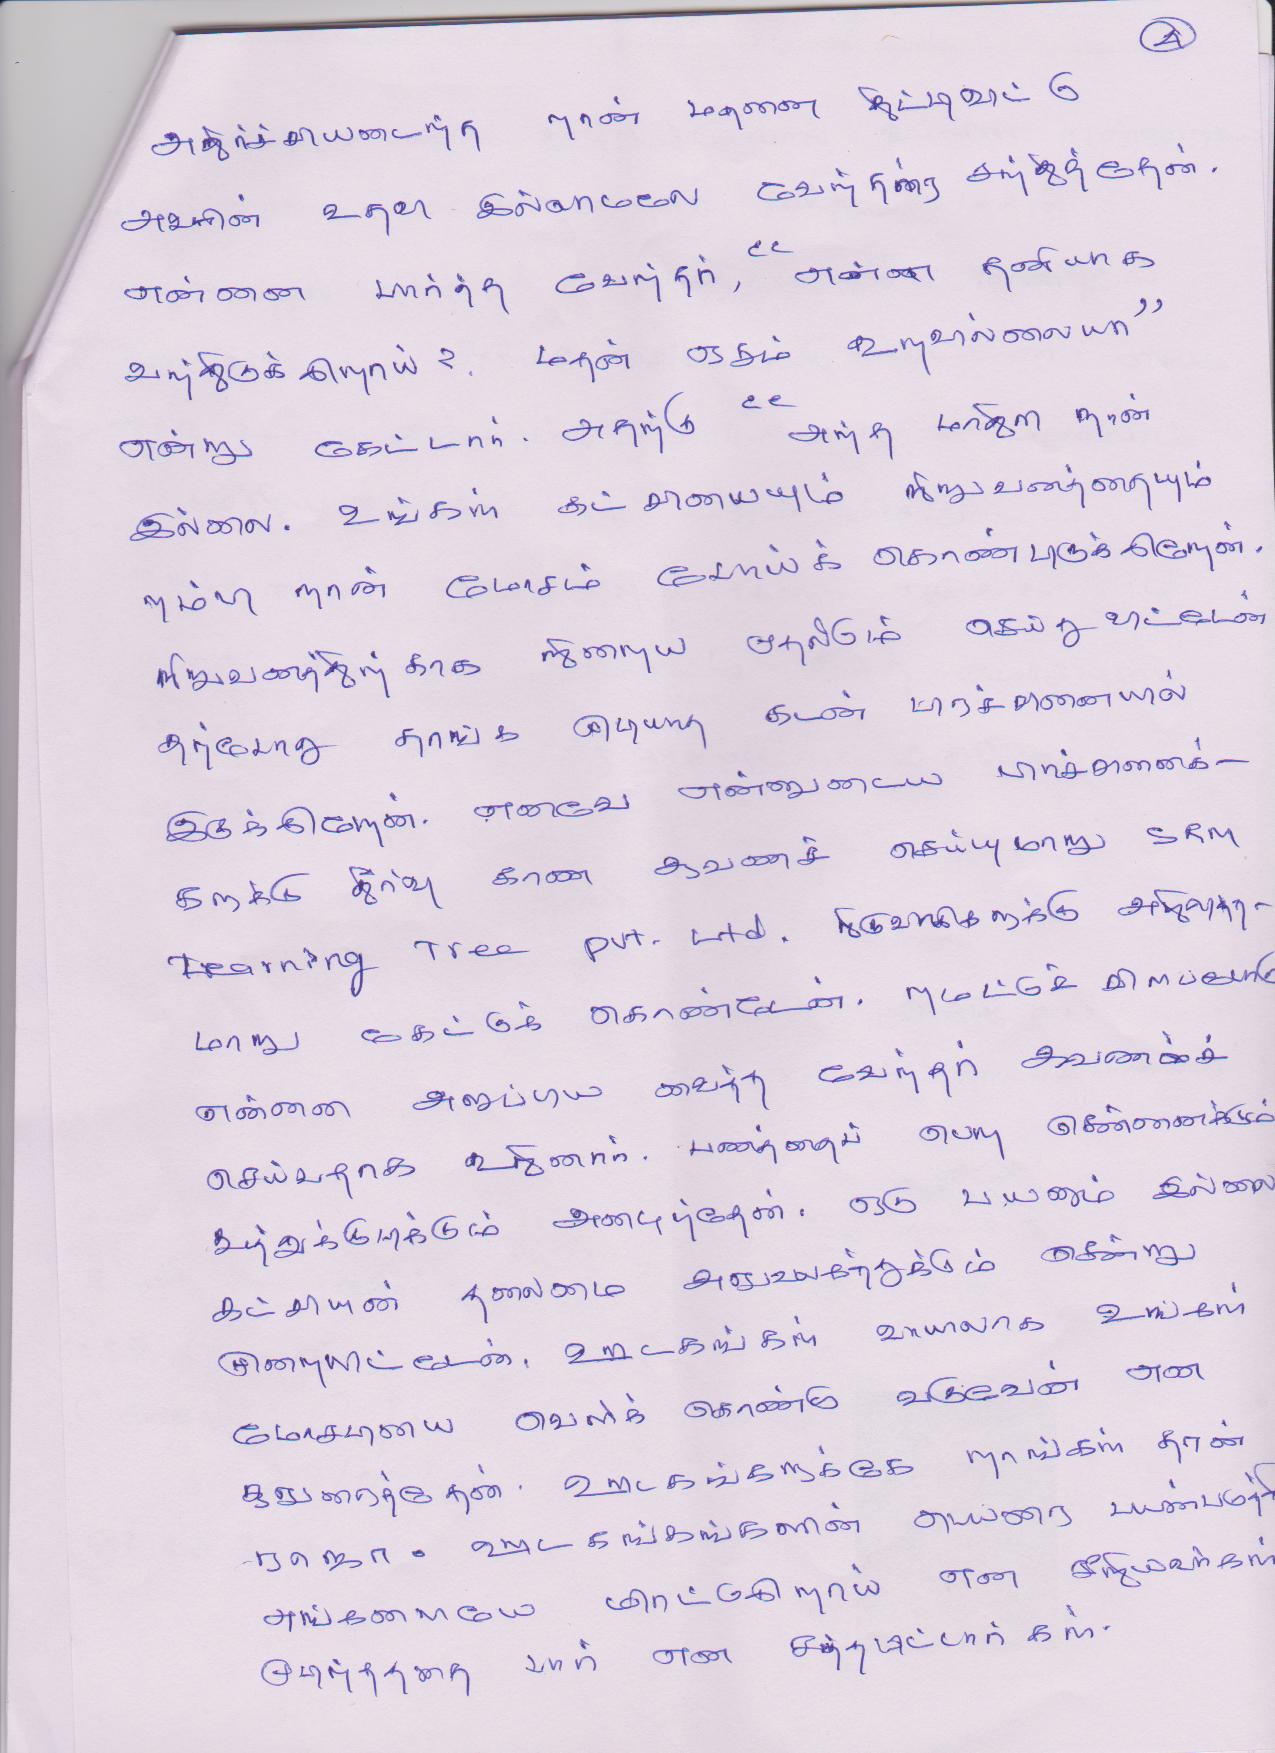 4
அதிர்ச்சியடைந்த நான் மதனை திட்டிவிட்டு
அவரின் உதவி இல்லாமலே வேந்தரை சந்தித்தேன்.
என்னை பார்த்த வேந்தர், “என்ன தனியாக
வந்திருக்கிறாய்? மதன் ஏதும் உதவவில்லையா”
என்று கேட்டார். அதற்கு “அந்த மாதிரி நான்
இல்லை. உங்கள் கட்சியையும் நிறுவனத்தையும்
நம்பி நான் மோசம் போய்க் கொண்டிருக்கிறேன்.
நிறுவனத்திற்காக நிறைய முதலீடும் செய்து விட்டேன்
தற்போது தாங்க முடியாத கடன் பிரச்சனையில்
இருக்கிறேன். எனவே என்னுடைய பிரச்சனைக்-
களுக்கு தீர்வு காண ஆவணச் செய்யுமாறு SRM
Learning Tree Pvt. Ltd. நிருவாகிகளுக்கு அறிவுறு-
மாறு கேட்டுக் கொண்டேன்.
என்னை அனுப்பிய வைத்த வேந்தர் ஆவணச்
செய்வதாக கூறினார். பணத்தைப் பெற சென்னைக்கும்
அலைந்தேன். ஒரு பயனும் இல்லை
கட்சியின் தலைமை அலுவலகத்துக்கும் சென்று
முறையிட்டேன். ஊடகங்கள் வாயிலாக உங்கள்
மோசடியை வெளிக் கொண்டு வருவேன் என
கூறினேன். ஊடகங்களுக்கே நாங்கள் தான்
ராஜா. ஊடகங்கங்களின் பெயரை பயன்படுத்தி
எங்களையே மிரட்டுகிறாய் என சீறியவர்கள்
முடிந்ததை பார் என சத்தமிட்டார்கள்.